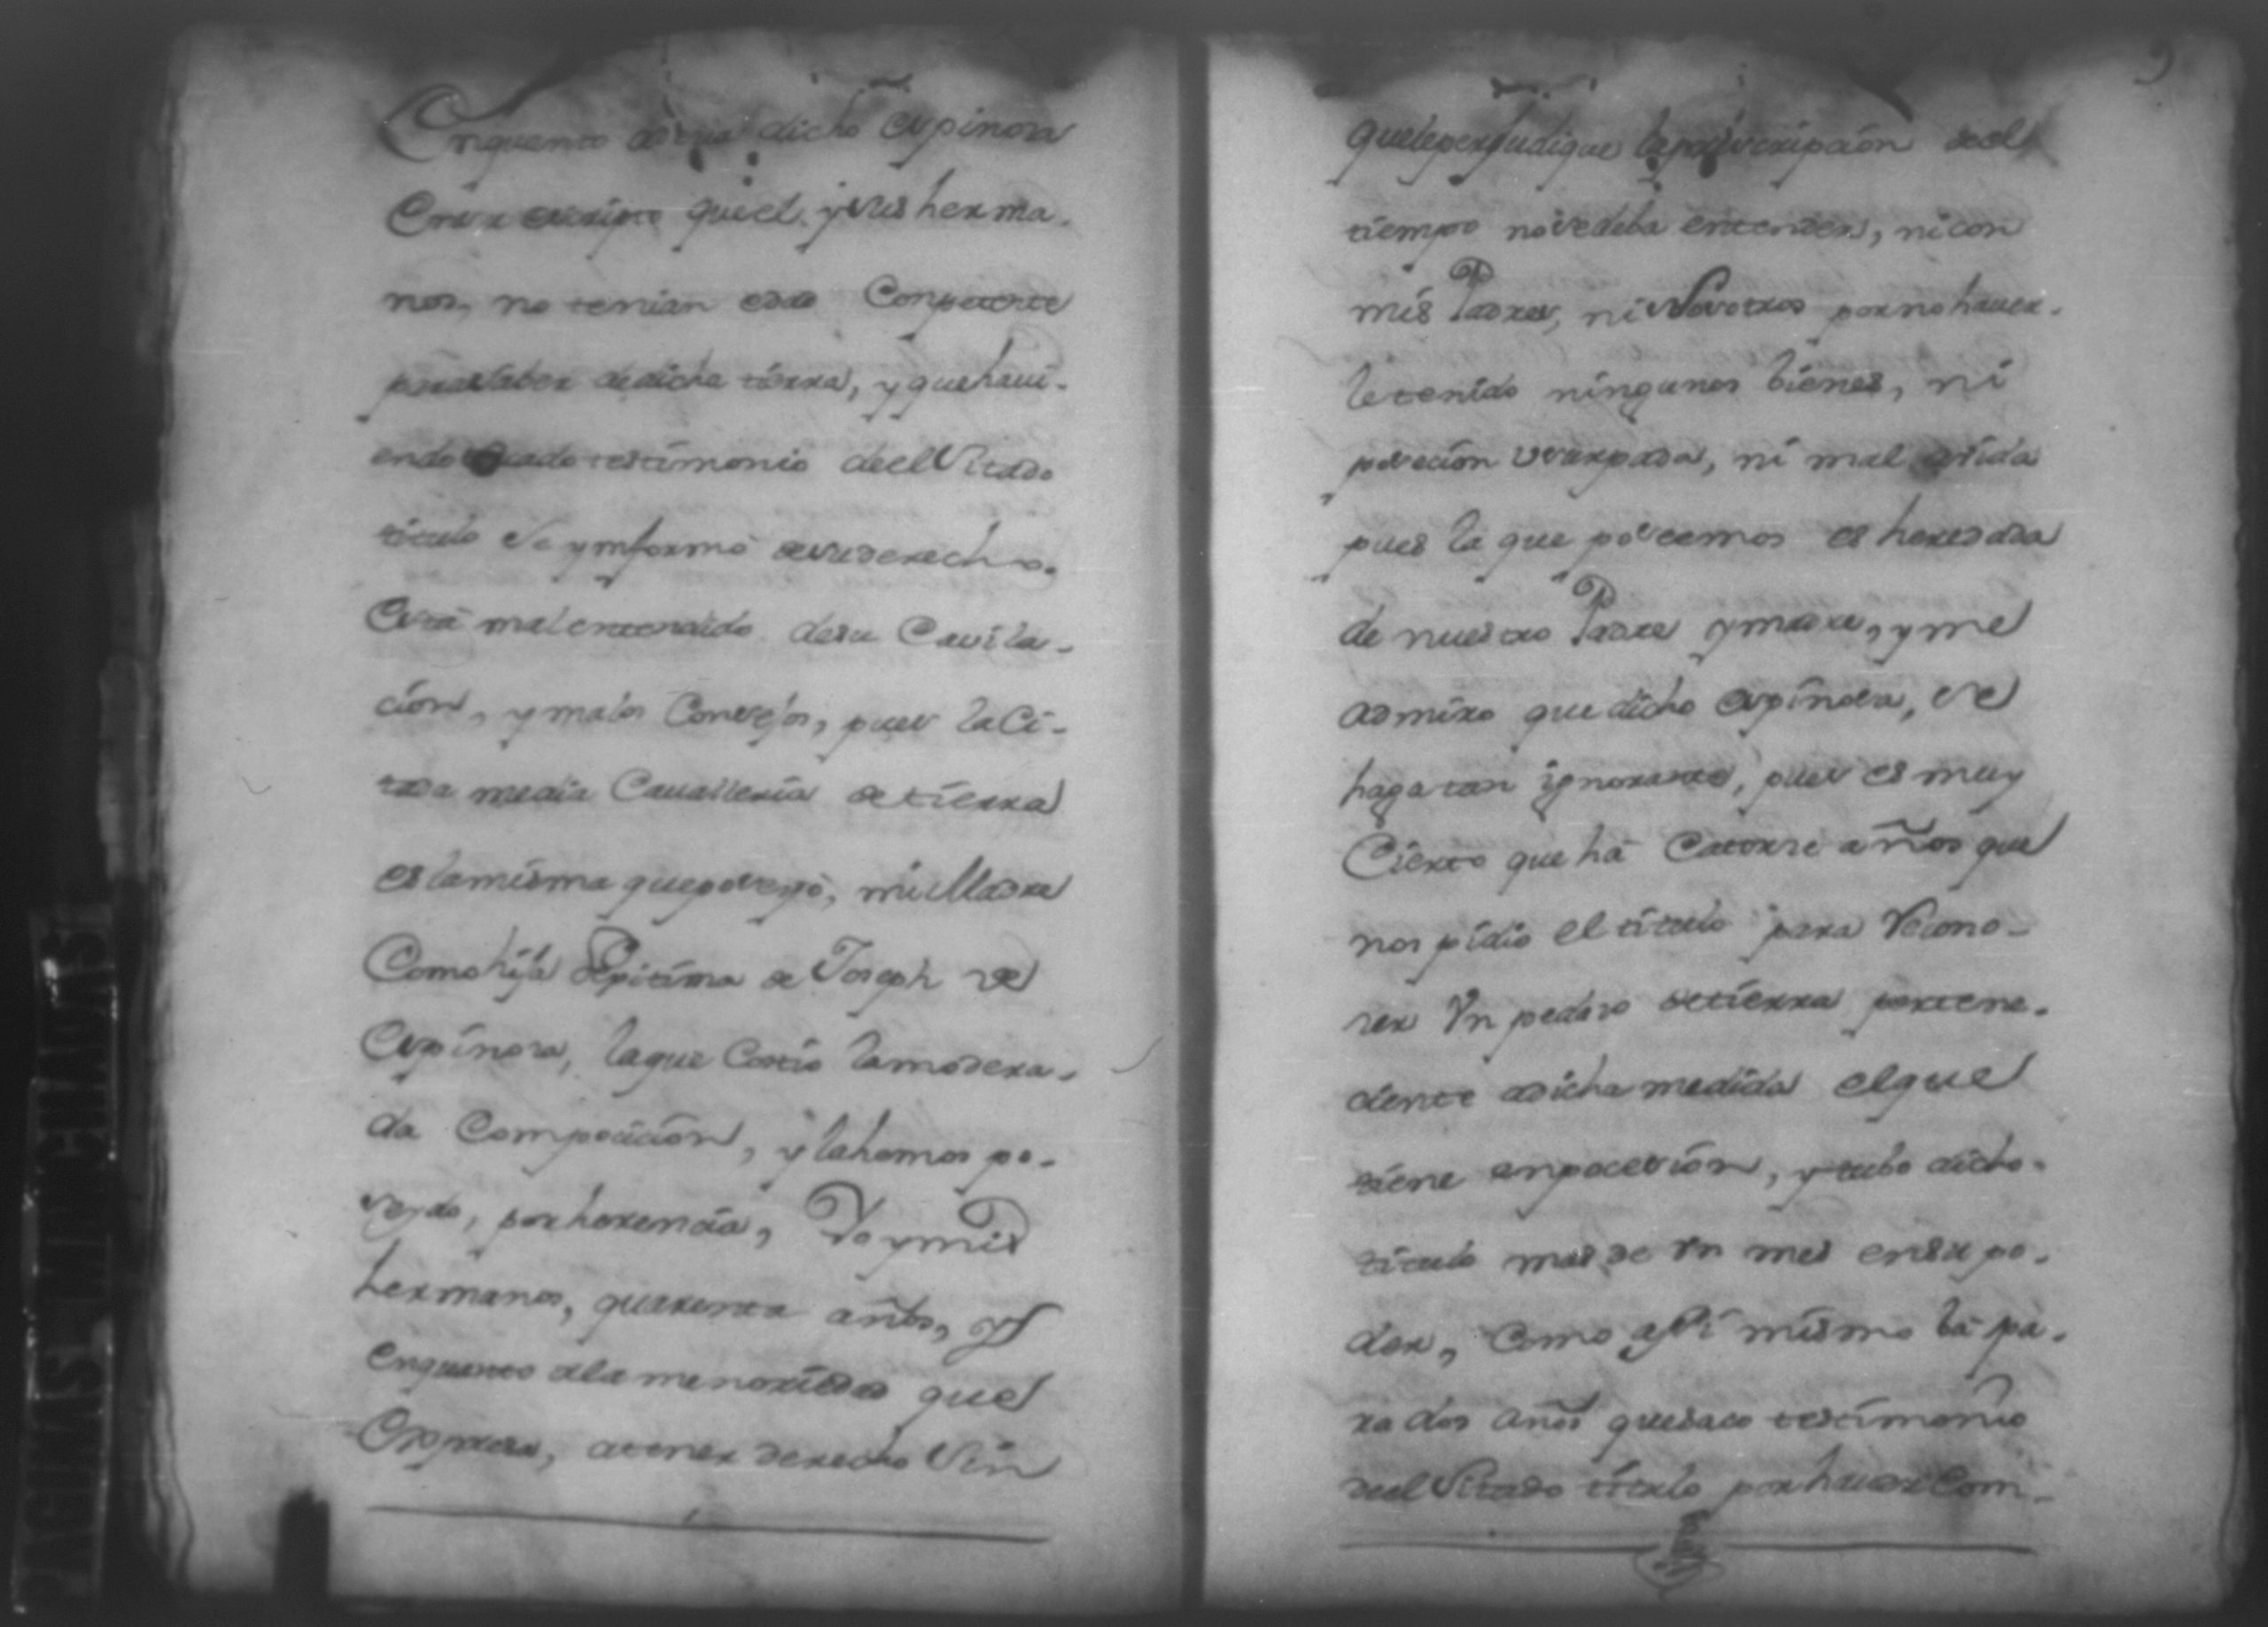 Enquento dicho espinosa
En su escripto que el y sus herma-
nos, no tenian edad Conpetente
para saber de dicha tierra, y que havi-
endo sacado testimonio de el Sitado
titulo se ynformó de su derecho.
Está mal entendido de su Cavila-
ción, y malos Consejos, pues la Ci-
tada media Cavalleria de tierra
es la misma que poseyó, mi Madre
Como hija Lexitima de Joseph de
Espinosa, la que Costió la modera-
da Composición, y la hemos po-
seydo, por herencia, Yo y mis
hermanos, quarenta años, y
enquanto a la menoridad que
Expresa, a tener derecho Sin
que le perjudique la prescripción de el
tiempo no se deba entender, ni con
mis Padres, ni Nosotros por no haver-
le tenido ningunos bienes, ni
poseción usurpada, ni mal avida
pues la que poseemos es heredada
de nuestro Padre y madre, y me
admiro que dicho espinosa, se
haga tan ignorante, pues es muy
Cierto que há Catorze años que
nos pidio el titulo para Recono-
zer Un pedazo de tierra pertene-
ciente a dicha medida el que
tiene en poceción, y tubo dicho
titulo mas de Un mes en su po-
der, Como assi mismo bá pa-
ra dos años que saco testimonio
de el Sitado titulo por haver Com-